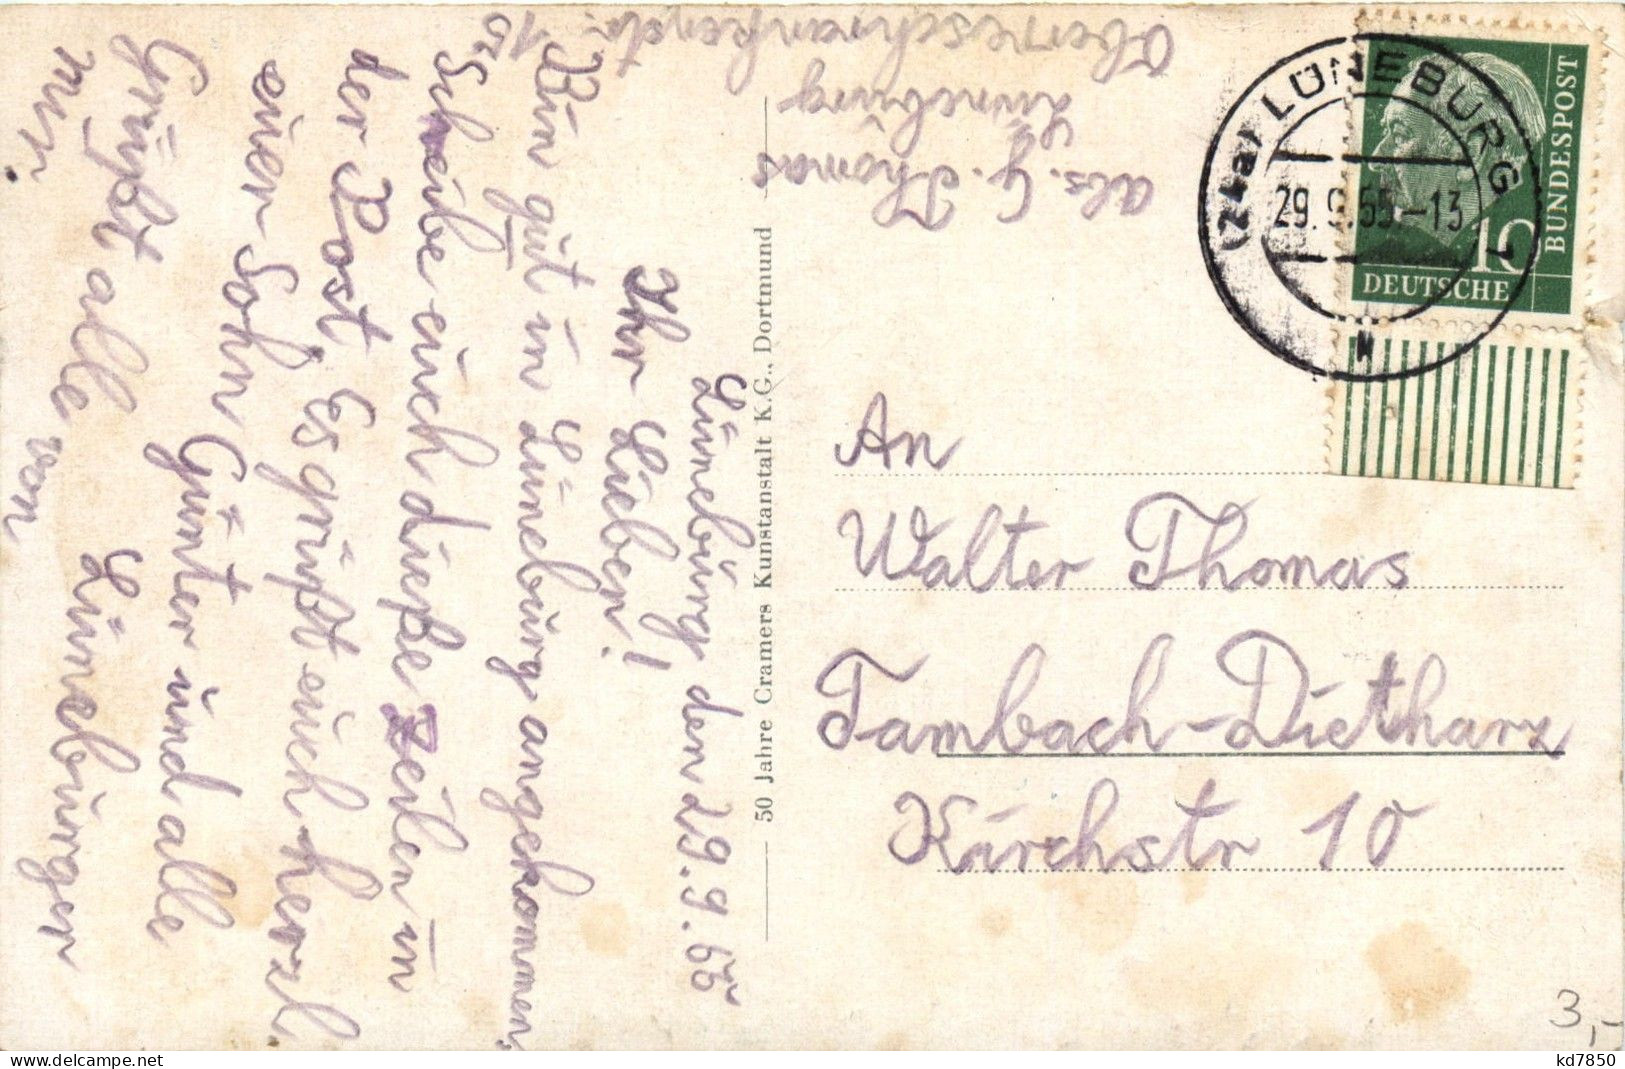 Lüneburg den 29.9.65
Ihr Lieben!
Bin gut in Lüneburg angekommen,
Schreibe euch dieße Zeilen in
der Post. Es grüßt euch herzl.
euer Sohn Günter und alle
Lüneburger
Grüßt alle von
mir.
Abs. G. Thomas
Lüneburg
50 Jahre Cramers Kunstanstalt K.G., Dortmund
(24a) LÜNEBURG 1
29.9.65.-13
DEUTSCHE
BUNDESPOST
10
An
Walter Thomas
Tambach-Dietharz
Kirchstr 10
3,-
kd7850